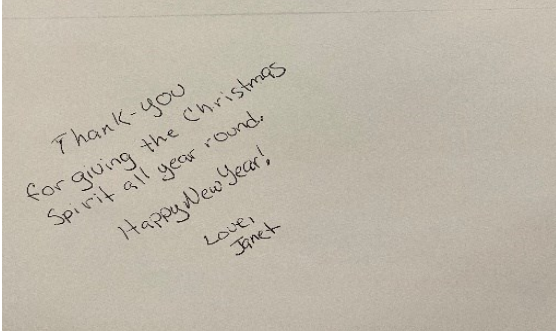 Thank-you
for giving the Christmas
Spirit all year round.
Happy New Year!
Love,
Janet